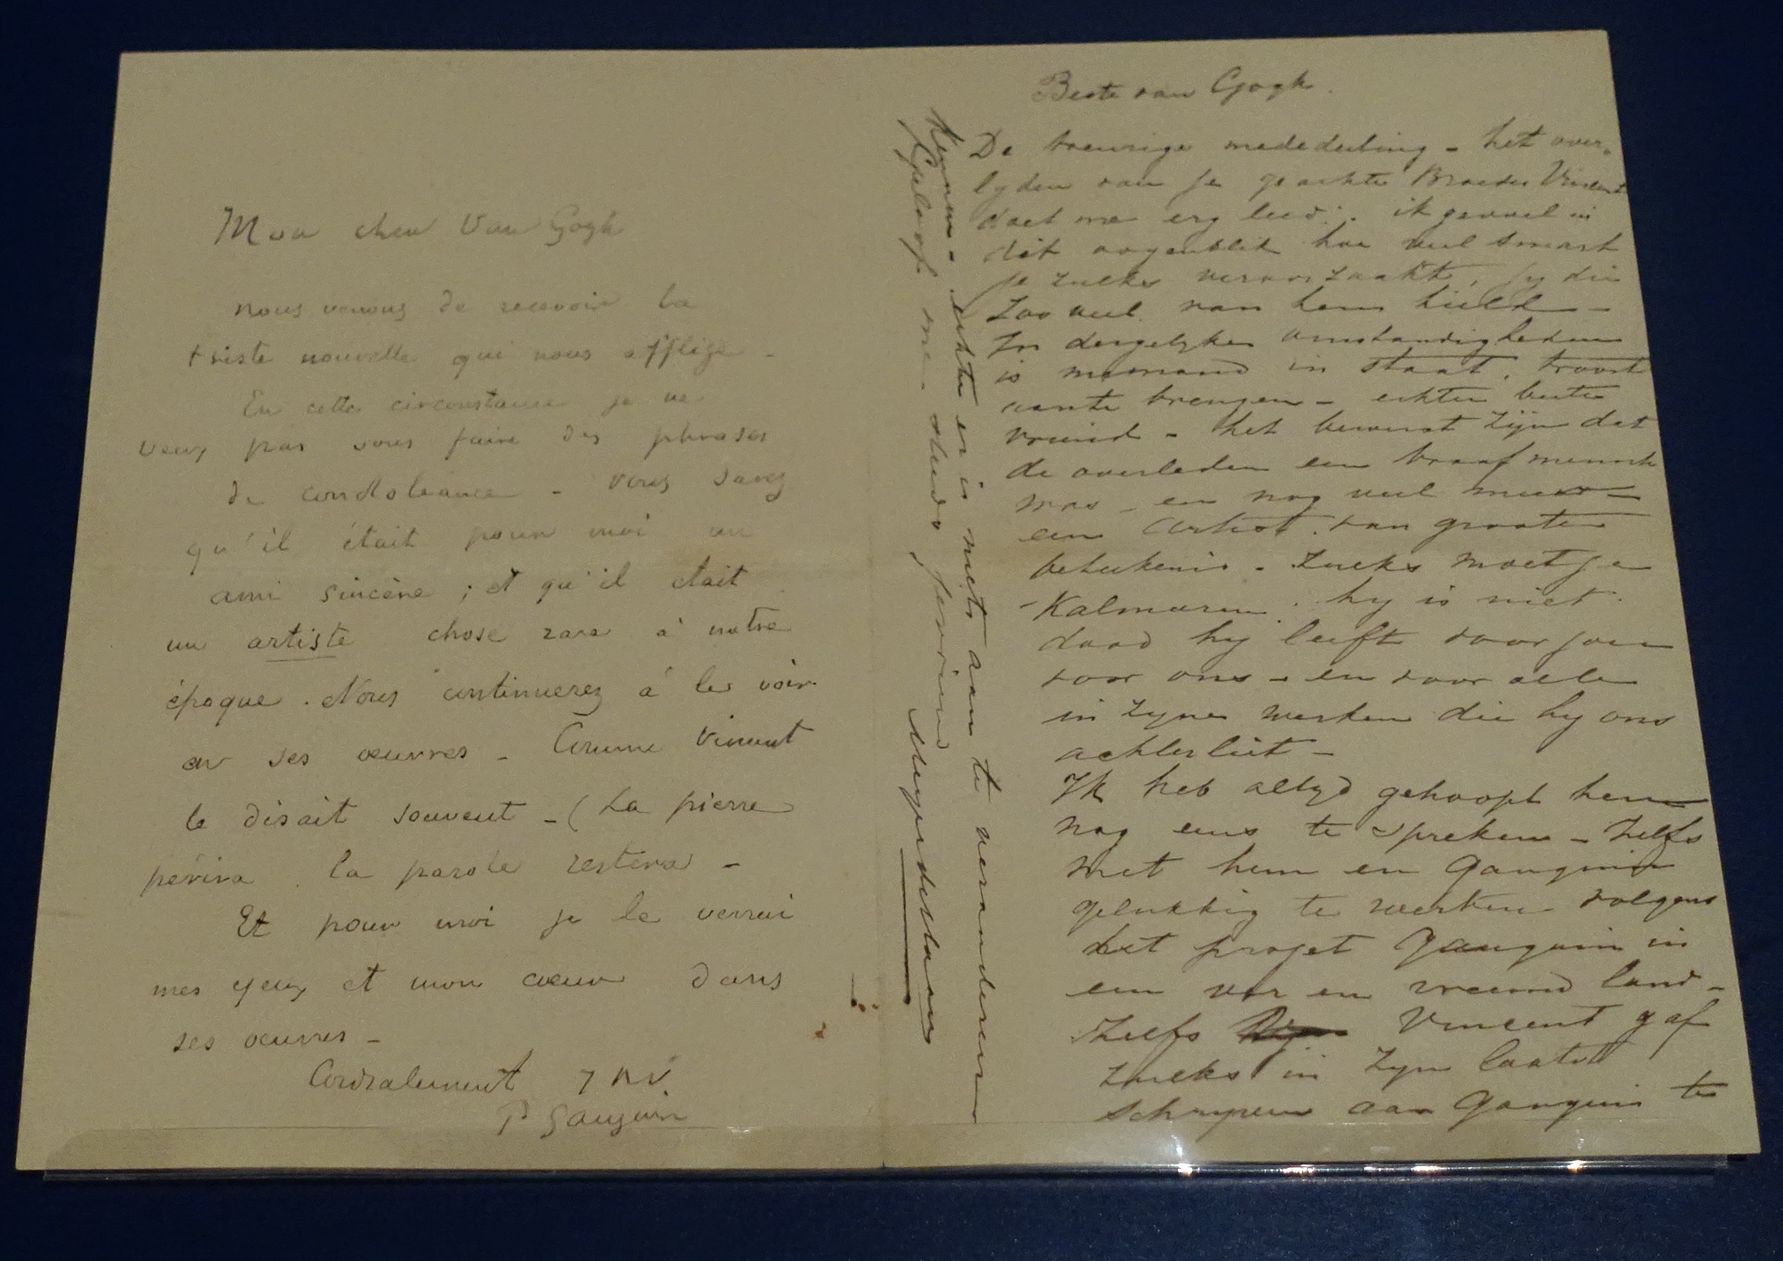 Mon cher Van Gogh
nous venons de recevoir la
triste nouvelle qui nous afflige -
En cette circonstance je ne
veux pas vous faire des phrases
de condoléance - Vous savez
qu'il était pour moi un
ami sincère ; et qu'il était
un artiste chose rare à notre
époque. Vous continuerez à le voir
en ses œuvres - Comme Vincent
le disait souvent - (La pierre
périra la parole restera -
Et pour moi je le verrai
mes yeux et mon cœur dans
ses œuvres -
Cordialement
P Gauguin
Beste van Gogh.
De treurige mededeeling - het over-
lyden van je geachte Broeder Vincent
doet me erg leed. ik gevoel in
dit oogenblik hoe veel smart
je zulks veroorzaakt, jy die
zoo veel van hem hield -
In dergelyke omstandigheden
is niemand in staat troost
aante brengen - echter beste
vriend - het bewust zijn dat
de overleden een braaf mensch
was - en nog veel meer -
een Artist van groote
beteekenis - zulks moet je
Kalmeren. hy is niet
dood hy leeft voor jou
voor ons - en voor alle
in zyne werken die hy ons
achterliet -
Ik heb altyd gehoopt hem
nog eens te spreken - zelfs
met hem en Gauguin
gelukkig te werken volgens
het projet Gauguin in
een ver en vreemd land -
zelfs Vincent gaf
zulks in zyn laatst
schryven aan Gauguin te
Kennen - echter er is niets aan te veranderen
Geloof me - steeds je vriend
Meyer de Haan